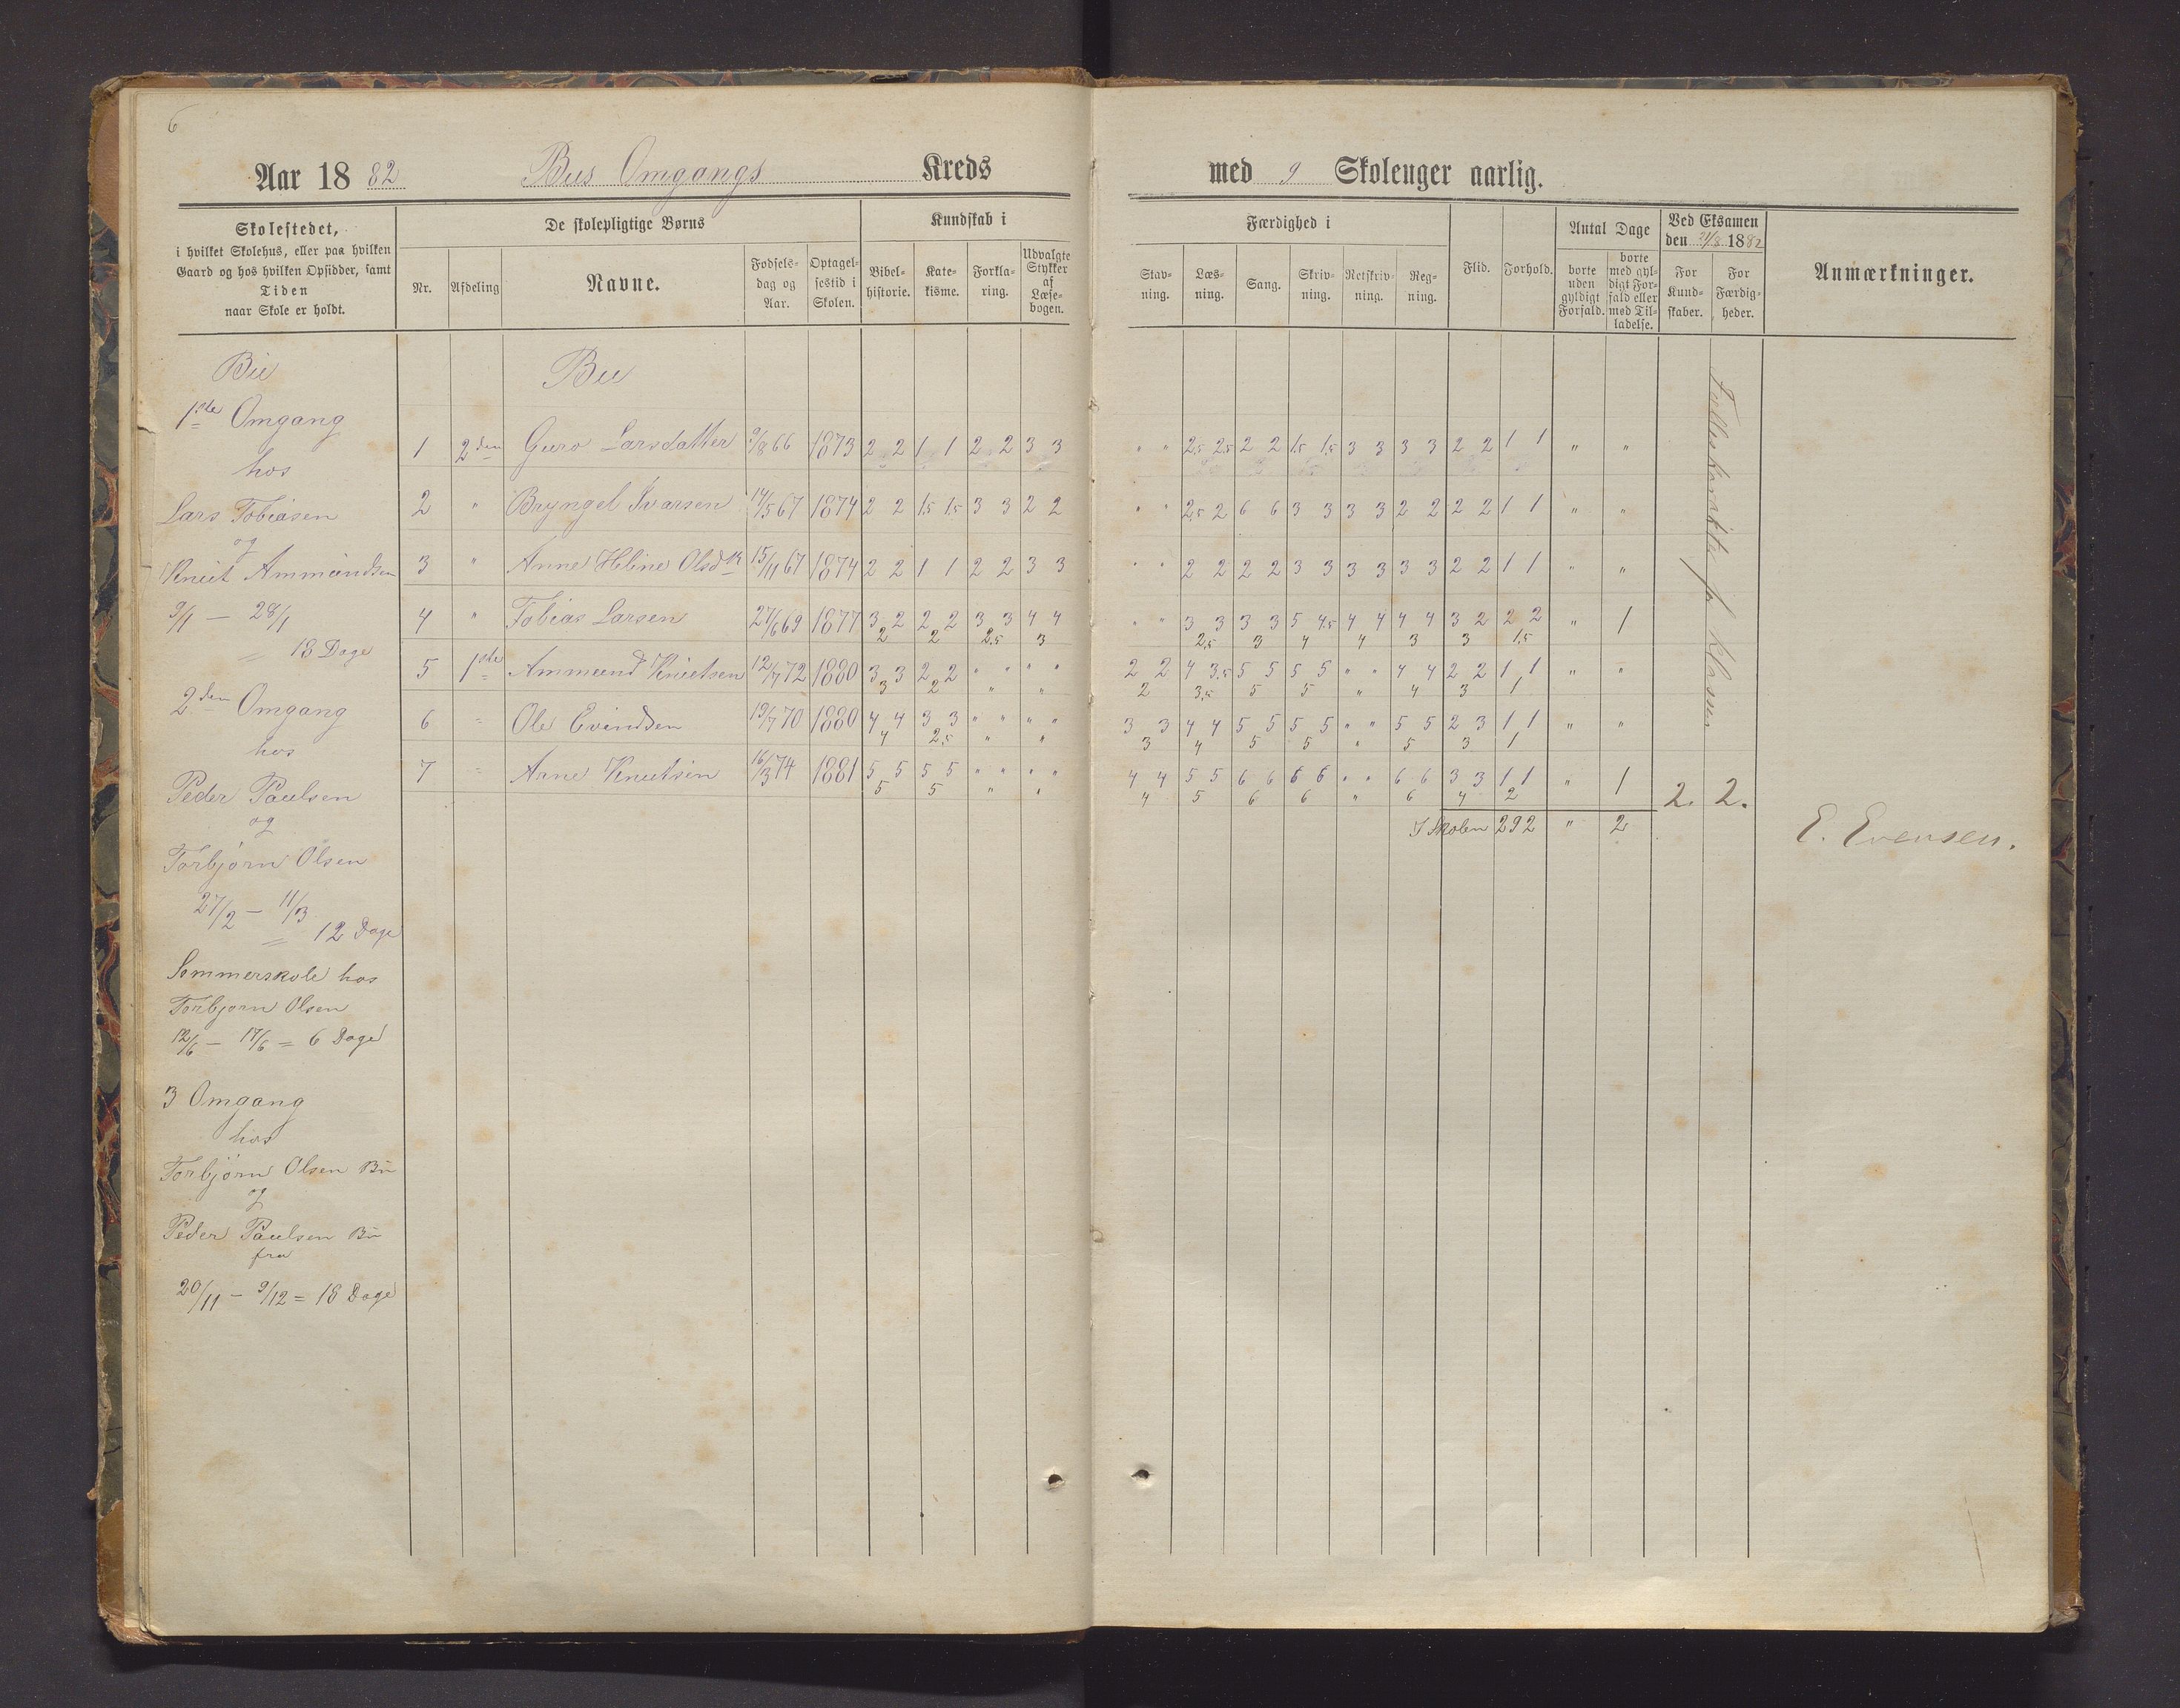 6
Aar 1882 Bus Omgangs Kreds
med 9 Skoleuger aarlig.
Skolestedet,
i hvilket Skolehus, eller paa hvilken
Gaard og hos hvilken Opsidder, samt
Tiden
naar Skole er holdt.
De skolepligtige Børns
Nr. Afdeling Navne. Fødselsdag og Aar. Optagelsestid i Skolen.
Kundskab i
Bibelhistorie. Katekisme. Forklaring. Udvalgte Stykker af Læsebogen.
Færdighed i
Stavning. Læsning. Sang. Skrivning. Retskrivning. Regning.
Flid. Forhold.
Antal Dage
borte uden gyldigt Forfald. borte med gyldigt Forfald eller med Tilladelse.
Ved Eksamen
den 21/8 1882
For Kundskaber. For Færdigheder.
Anmærkninger.
Bu
1ste Omgang
hos
Lars Tobiasen
og
Knut Ammundsen
9/1 — 28/1
= 18 Dage
2den Omgang
hos
Peder Paulsen
og
Torbjörn Olsen
27/2 — 11/3
= 12 Dage
Sommerskole hos
Torbjørn Olsen
12/6 — 17/6 = 6 Dage
3 Omgang
hos
Torbjörn Olsen Bu
og
Peder Paulsen Bu
fra
20/11 — 9/12 = 18 Dage
Bu
1 2den Guro Larsdatter 9/8 66 1873 2 2 1 1 2 2 3 3 " " 2,5 2,5 2 2 1,5 1,5 3 3 3 3 2 2 1 1 " "
2 " Bryngel Ivarsen 14/5 67 1874 2 2 1,5 1,5 3 3 2 2 " " 2,5 2 6 6 3 3 3 3 2 2 2 2 1 1 " "
3 " Anne Heline Olsdtr 15/11 67 1874 2 2 1 1 2 2 3 3 " " 2 2 2 2 3 3 3 3 3 3 2 2 1 1 " "
4 " Tobias Larsen 27/6 69 1877 3 2 2 2 3 3 4 4 " " 3 3 3 3 5 4,5 4 4 4 4 3 2 2 2 " 1
2 2 2,5 3 2,5 3 4 4 3 3 1,5
5 1ste Ammund Knutsen 12/7 72 1880 3 3 2 2 " " " " 2 2 4 3,5 5 5 5 5 " " 4 4 2 2 1 1 " "
3 2 " " 2 3,5 5 5 " 4 3 1
6 " Ole Evindsen 19/7 70 1880 4 4 3 3 " " " " 3 3 4 4 5 5 5 5 " " 5 5 2 3 1 1 " "
4 2,5 " " 3 4 5 5 " 5 3 1
7 " Arne Knutsen 16/3 74 1881 5 5 5 5 " " " " 4 4 5 5 6 6 6 6 " " 6 6 3 3 1 1 " 1
5 5 " " 4 5 6 6 " 6 4 2
I Skolen 292 " 2
2. 2.
E. Evensen.
Felleskarakter for klassen